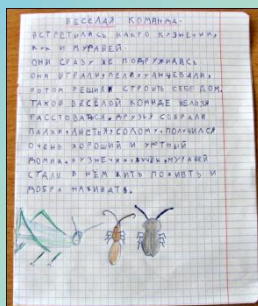 ВЕСЁЛАЯ КОМАНДА.
ВСТРЕТИЛИСЬ КАКТО КУЗНЕЧИК,
ЖУК И МУРАВЕЙ.
ОНИ СРАЗУ ЖЕ ПОДРУЖИЛИСЬ
ОНИ ИГРАЛИ, ПЕЛИ, ТАНЦЕВАЛИ,
ПОТОМ РЕШИЛИ СТРОИТЬ СЕБЕ ДОМ.
ТАКОЙ ВЕСЁЛОЙ КОМАНДЕ НЕЛЬЗЯ
РАССТОВАТЬСЯ. ДРУЗЬЯ СОБРАЛИ
ПАЛКИ, ЛИСТЬЯ, СОЛОМУ. ПОЛУЧИЛСЯ
ОЧЕНЬ ХОРОШИЙ И УЮТНЫЙ
ДОМИК. КУЗНЕЧИК, ЖУЧЕК, МУРАВЕЙ
СТАЛИ В НЁМ ЖИТЬ ПОЖИВАТЬ И
ДОБРА НАЖИВАТЬ.